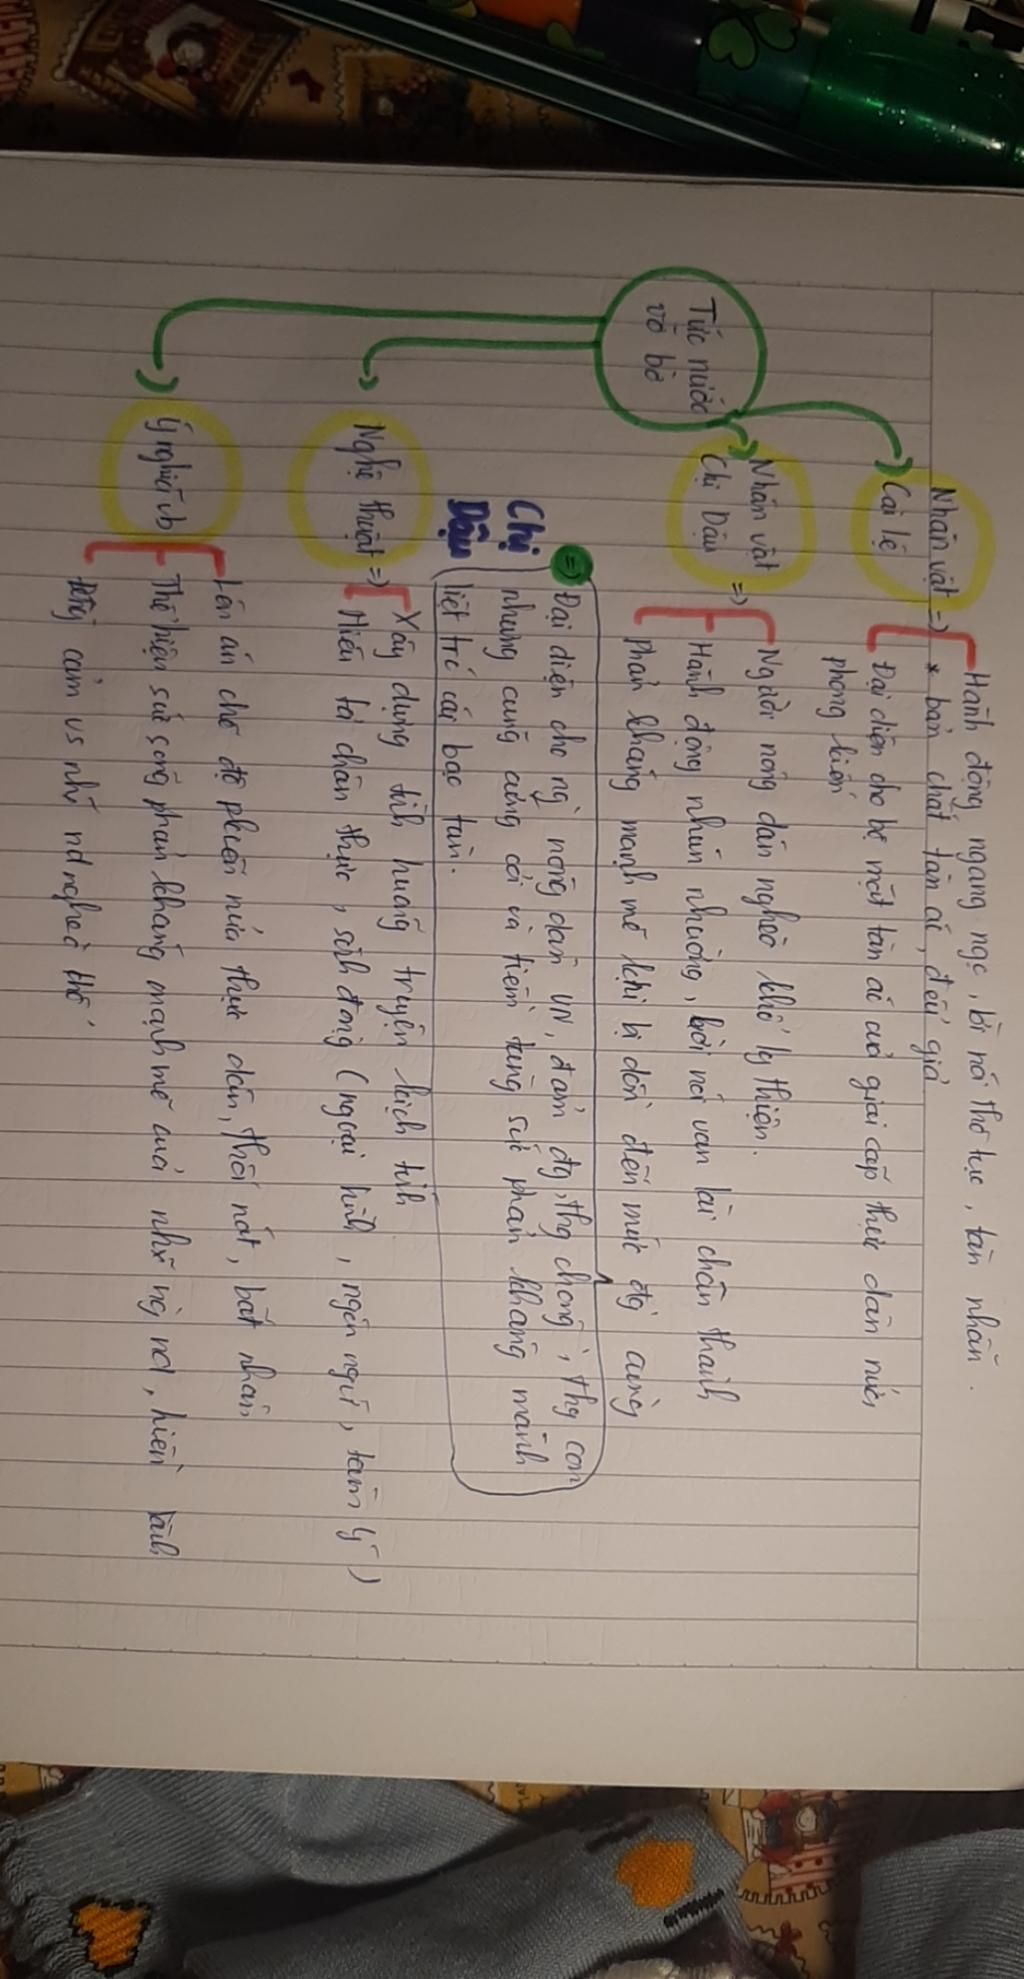 Nhân vật =>
Cai lệ
Hành động ngang ngc, lời nói thô tục, tàn nhẫn.
* bản chất tàn ác, đểu giả
Đại diện cho bộ mặt tàn ác của giai cấp thực dân nước
phong kiến
Tức nước
vỡ bờ
Nhân vật
Chị Dậu =>
Người nông dân nghèo khổ lg thiện.
Hành động nhún nhường, lời nói van lài chân thành
Phản kháng mạnh mẽ khi bị dồn đến mức đg cùng
=> Đại diện cho ng` nông dân VN, đảm đg, thg chồng, thg con
nhưng cũng cứng cỏi và tiềm tàng sức phản kháng mãnh
liệt trc cái bạo tàn.
Chị
Dậu
Nghệ thuật =>
Xây dựng tình huống truyện kịch tính
Miêu tả chân thực, sinh động (ngoại hình, ngôn ngữ, tâm lý)
Ý nghĩa vb
Lên án chế độ phong kiến nửa thực dân, thối nát, bất nhân
Thể hiện sức sống phản kháng mạnh mẽ của nhx ng` nd, hiền lành
Đồng cảm vs nhx nd nghèo khổ